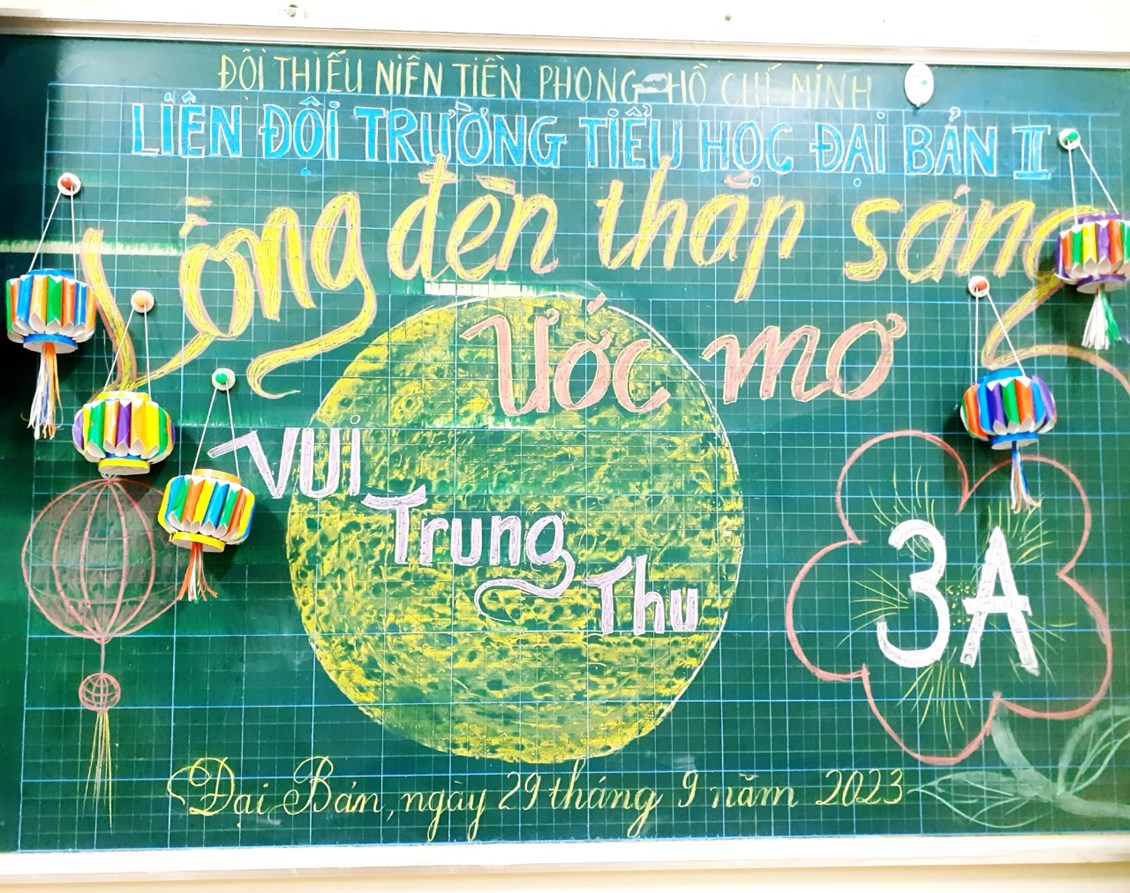 ĐỘI THIẾU NIÊN TIỀN PHONG HỒ CHÍ MINH
LIÊN ĐỘI TRƯỜNG TIỂU HỌC ĐẠI BẢN II
Lồng đèn thắp sáng
Ước mơ
VUi
Trung
Thu
3A
Đại Bản, ngày 29 tháng 9 năm 2023